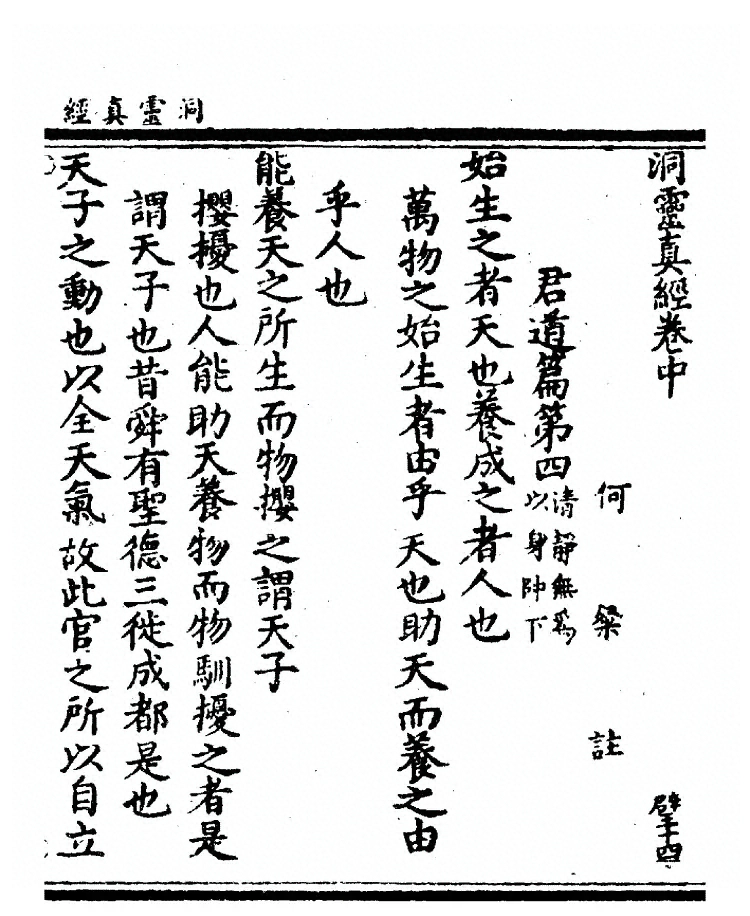 洞靈真經
洞靈真經卷中
何粲註
君道篇第四
清靜無爲
以身帥下
始生之者天也養成之者人也
萬物之始生者由乎天也助天而養之由
乎人也
能養天之所生而物攖之謂天子
攖擾也人能助天養物而物馴擾之者是
謂天子也昔舜有聖德三徙成都是也
天子之動也以全天氣故此官之所以自立